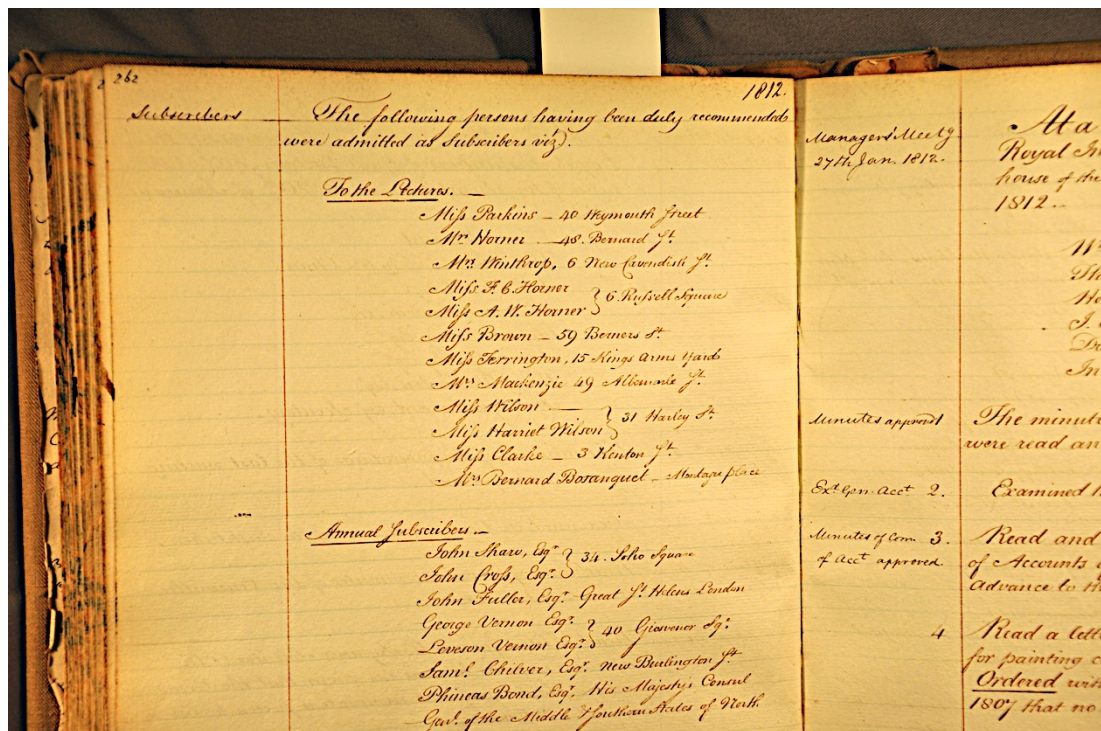 262
1812.
Subscribers
The following persons having been duly recommended
were admitted as Subscribers vizt.
To the Lectures. —
Miss Parkins — 40 Weymouth Street
Mrs Horner — 48. Bernard St.
Mrs Winthrop, 6 New Cavendish St.
Miss F. C. Horner
Miss A. W. Horner } 6. Russell Square
Miss Brown — 59 Berners St.
Miss Terrington, 15 Kings Arms Yard
Mrs Mackenzie 49 Albemarle St.
Miss Wilson —
Miss Harriet Wilson } 31 Harley St.
Miss Clarke — 3 Kenton St.
Mrs Bernard Bosanquet — Montagu place
Annual Subscribers. —
John Sharo, Esqr.
John Cross, Esqr. } 34. Soho Square
John Fuller, Esqr. Great St. Helens London
George Vernon Esqr.
Leveson Vernon Esqr. } 40 Grosvenor Sqr.
Saml. Chilver, Esqr. New Burlington St
Phineas Bond, Esqr. His Majesty's Consul
Genl. of the Middle & Southern States of North
Managers' Meetg
27th Jan. 1812.
At a
Royal In
house of the
1812. —
W
Th
He
I.
Do
In
Minutes approved
The minute
were read an
Ext. Gen. Acct. 2.
Examined
Minutes of Com. 3.
of Acct. approved.
Read and
of Accounts
Advance to th
4
Read a lett
for painting
Ordered with
1807 that no